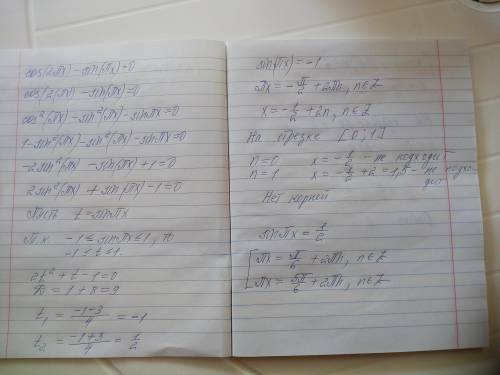 cos(2πx) - sin(πx) = 0
cos(2(πx)) - sin(πx) = 0
cos²(πx) - sin²(πx) - sin πx = 0
1 - sin²(πx) - sin²(πx) - sin πx = 0
-2sin²(πx) - sin(πx) + 1 = 0
2sin²(πx) + sin(πx) - 1 = 0
Пусть t = sin πx
т.к -1 ≤ sin πx ≤ 1, то
-1 ≤ t ≤ 1.
2t² + t - 1 = 0
D = 1 + 8 = 9
t₁ = (-1-3)/4 = -1
t₂ = (-1+3)/4 = 1/2
sin(πx) = -1
πx = -π/2 + 2πn, n∈Z
x = -1/2 + 2n, n∈Z
На отрезке [0; 1]
n = 0 x = -1/2 - не подходит
n = 1 x = -1/2 + 2 = 1,5 - не подхо-
дит
Нет корней
sin πx = 1/2
[ πx = π/6 + 2πn, n∈Z
πx = 5π/6 + 2πn, n∈Z